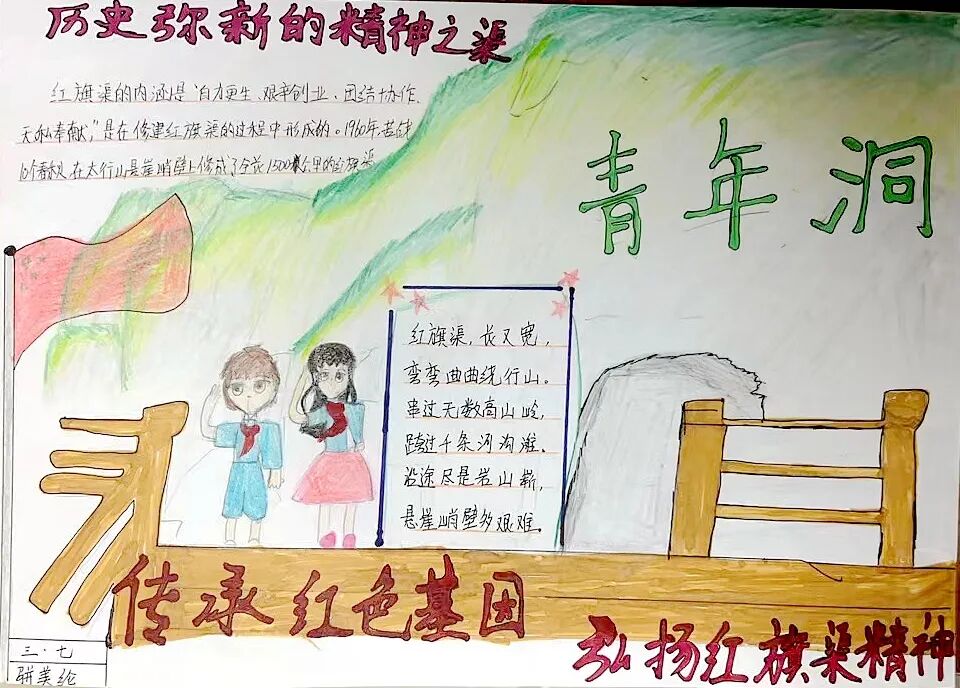 历史弥新的精神之渠
红旗渠的内涵是“自力更生、艰辛创业、团结协作、
无私奉献,”是在修建红旗渠的过程中形成的。1960年,苦战
10个春秋,在太行山悬崖峭壁上修成了全长1500公里的红旗渠
青年洞
红旗渠,长又宽,
弯弯曲曲绕行山。
串过无数高山岭,
跨过千条河沟滩。
沿途尽是岩山崭,
悬崖峭壁多艰难。
传承红色基因
弘扬红旗渠精神
三·七
骈美纶